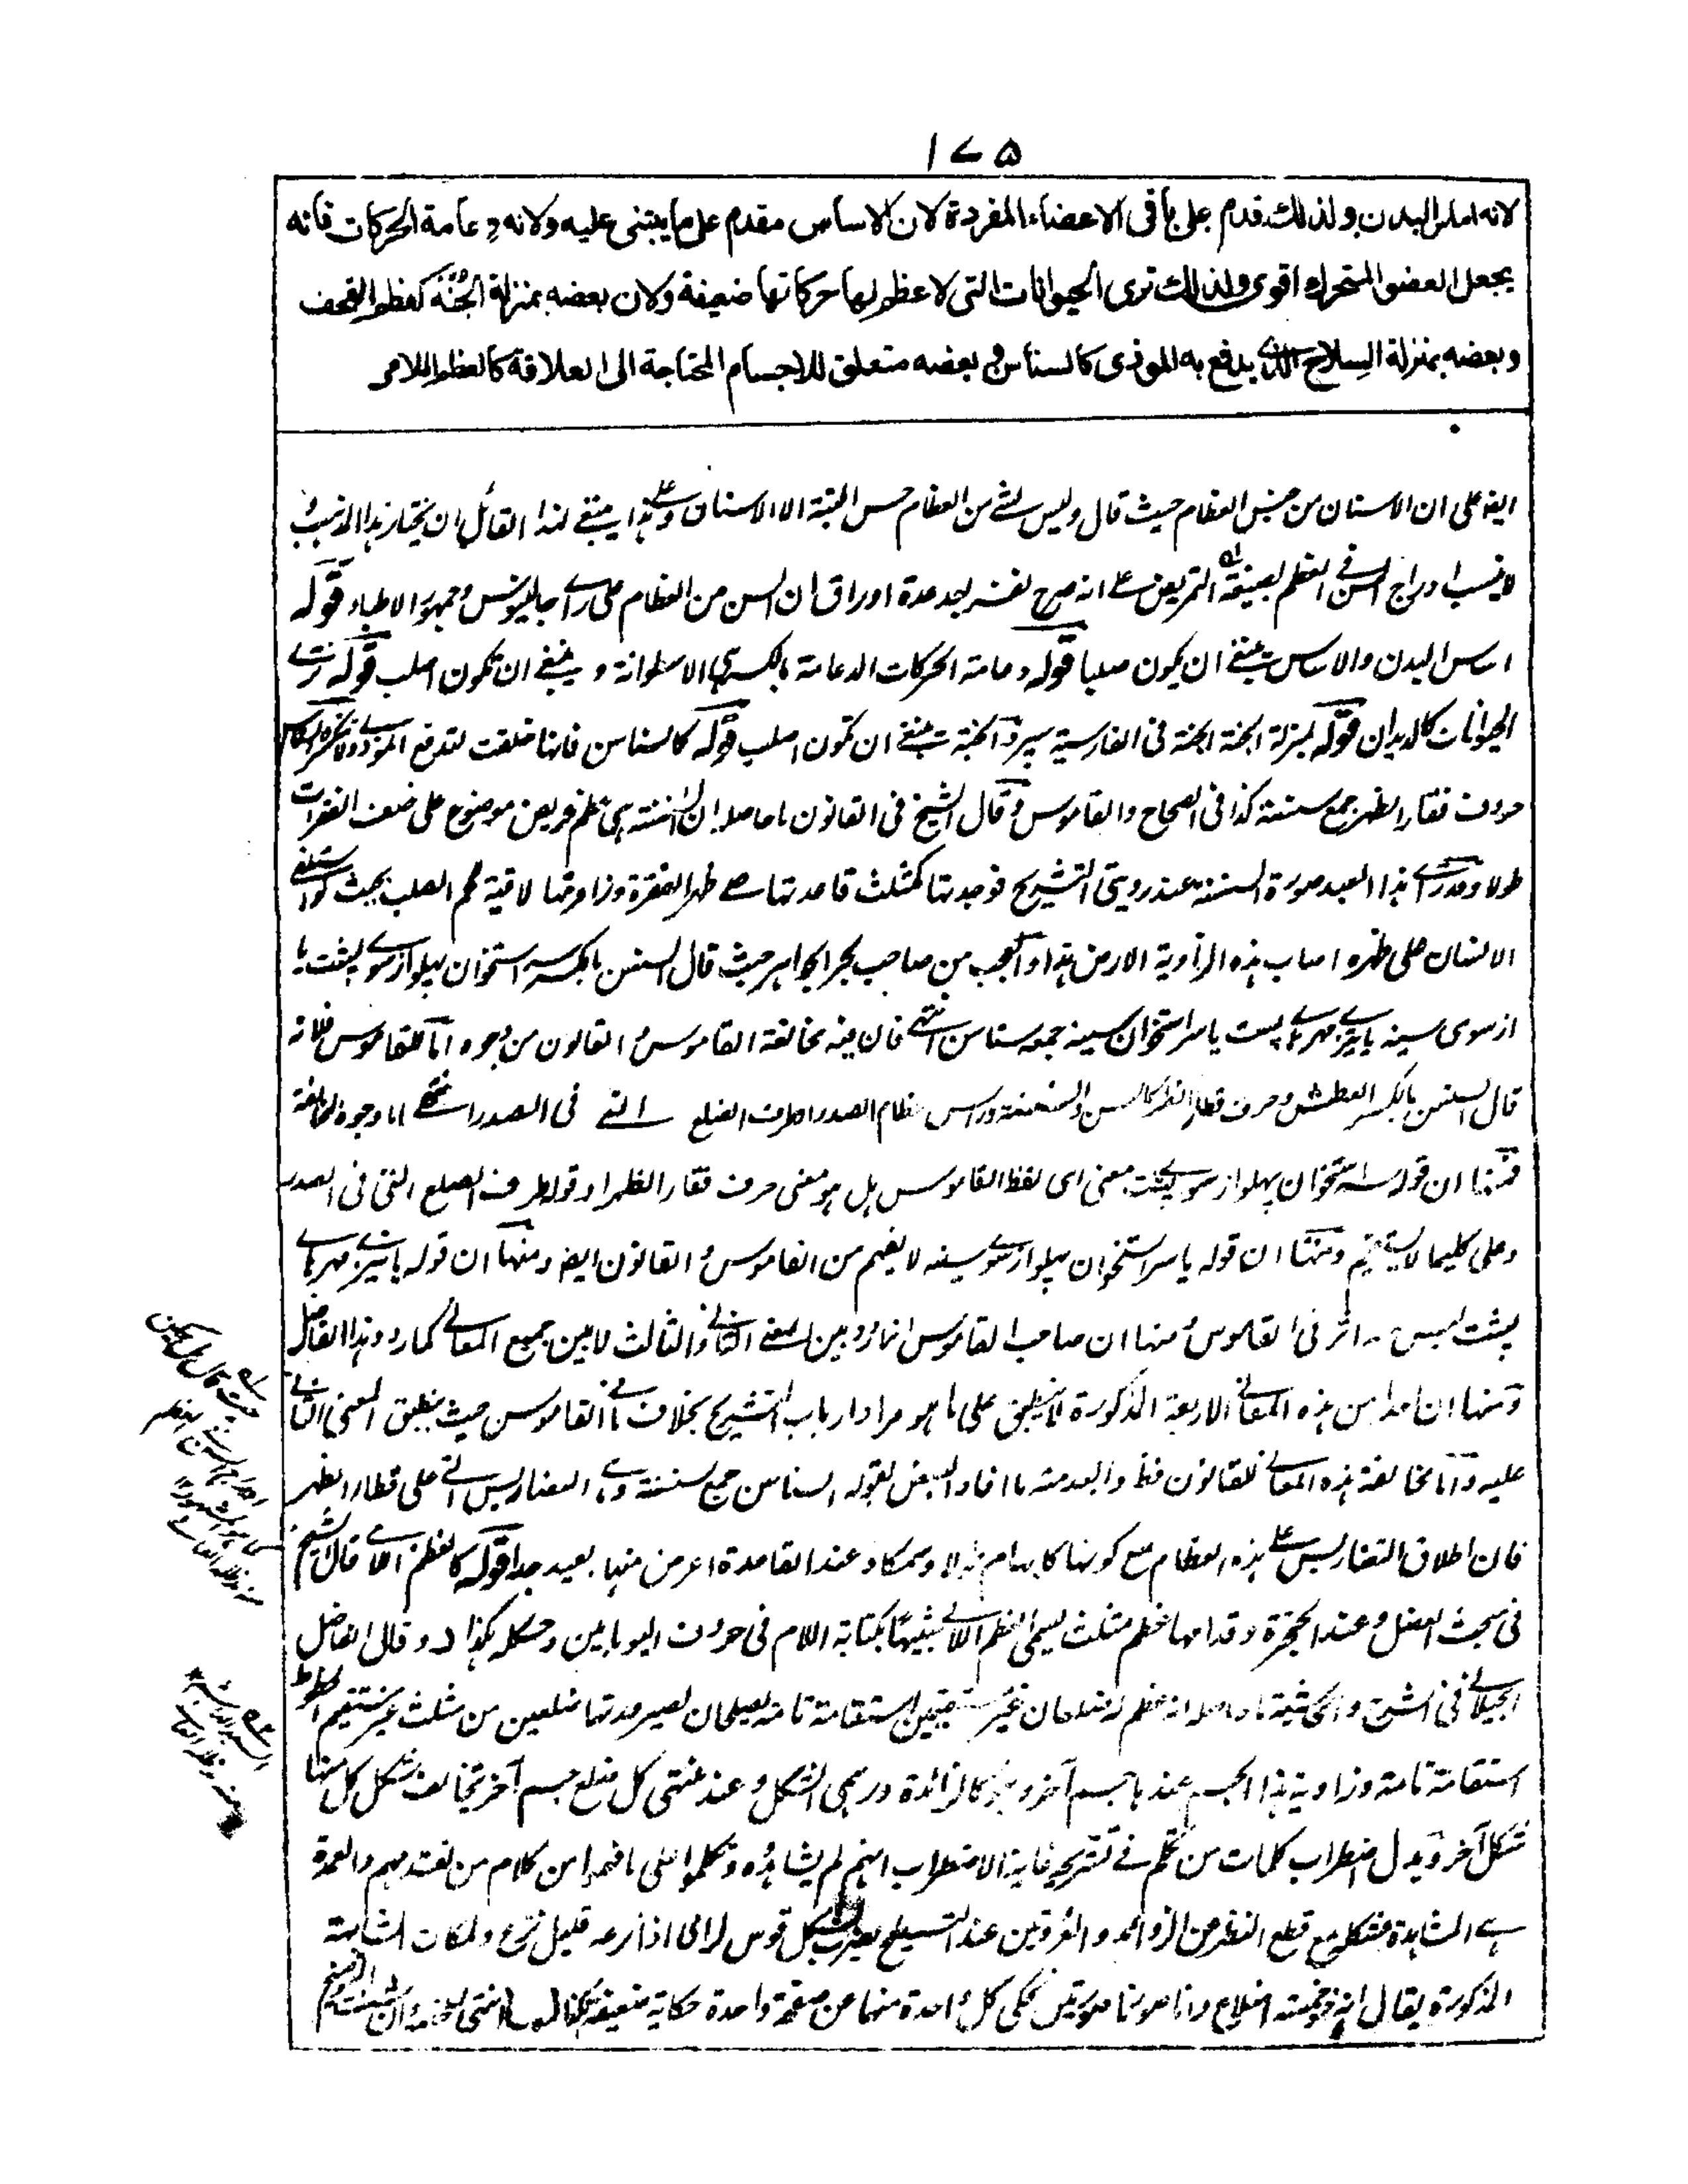 ۱۷۵
لانه اساس البدن ولذلك قدم على باقى الاعضاء المفردة لان الاساس مقدم على ما يبتنى عليه ولانه دِعامة الحركات فانه
يجعل العضو المتحرك اقوى ولذلك ترى الحيوانات التى لا عظم لها حركاتها ضعيفة ولان بعضه بمنزلة الجُنّة كعظم القحف
وبعضه بمنزلة السِلاح الذى يدفع به الموذى كالسناسن وبعضه متعلق للاجسام المحتاجة الى العلاقة كالعظم اللامى
ايضا على ان الاسنان من جنس العظام حيث قال وليس لشئ من العظام حس البتة الا الاسنان وعلى هذا ينبغى لهذا القائل ان يختار هذا المذهب و
لا ينسب ادراج السن فى العظم بصيغة التمريض على انه صرح نفسه بعد عدة اوراق ان السن من العظام على راى جالينوس وجمهور الاطباء قوله
اساس البدن والاساس ينبغى ان يكون صلبا قوله دعامة الحركات الدعامة بالكسر هى الاسطوانة وينبغى ان تكون اصلب قوله ترى
الحيوانات كالديدان قوله بمنزلة الجنة الجنة فى الفارسية سپر و الجنة ينبغى ان تكون اصلب قوله كالسناسن فانها خلقت لتدفع الموذى
حروف فقار الظهر جمع سنسنة كذا فى الصحاح والقاموس وقال الشيخ فى القانون ما حاصله ان السنسنة هى عظم عريض موضوع على ضعف الفقرات
طولا وقد راى هذا العبد صورة السنسنة عند رويتى التشريح فوجدتها كمثلث قاعدتها على ظهر الفقرة وزاويتها لاقية لحم الصلب بحيث لو استلقى
الانسان على ظهره اصاب هذه الزاوية الارض هذا والعجب من صاحب بحر الجواهر حيث قال السنسن بالكسر سر استخوان پهلو از سوى پشت يا
از سوى سينه يا تيزى مهرهاى پشت يا سر استخوان سينه جمعه سناسن انتهى فان فيه مخالفة القاموس و القانون من وجوه اما للقاموس فلانه
قال السنسن بالكسر العطش وحرف فقار الظهر كالسن والسنسنة وراس عظام الصدر او طرف الضلع التى فى الصدر انتهى اما وجوه المخالفة
فمنها ان قوله سر استخوان پهلو از سوى پشت معنى اى لفظ القاموس هل هو معنى حرف فقار الظهر او قوله طرف الضلع التى فى الصدر
وعلى كليهما لا يستقيم ومنها ان قوله يا سر استخوان پهلو از سوى سينه لا يفهم من القاموس و القانون ايضا ومنها ان قوله يا تيزى مهرهاى
پشت ليس له اثر فى القاموس و منها ان صاحب القاموس انما ردد بين المعنى الثانى والثالث لا بين جميع المعانى كما ردد هذا الفاضل
ومنها ان احدا من هذه المعانى الاربعة المذكورة لا ينطبق على ما هو مراد ارباب التشريح بخلاف ما فى القاموس حيث ينطبق المعنى الثانى
عليه واما مخالفة هذه المعانى للقانون فظ والبعد منه ما افاد البعض بقوله السناسن جمع سنسنة وهى الغضاريس التى على قطار الظهر
فان اطلاق الغضاريس على هذه العظام مع كونها كابهام طولا وسمكا وعند القاعدة اعرض منها بعيد جدا قوله كالعظم اللامى قال الشيخ
فى مبحث العضل وعند الحنجرة وقدامها عظم مثلث يسمى العظم اللامى تشبيها بكتابة اللام فى حروف اليونانيين وشكله هكذا د وقال الفاضل
الجيلانى فى الشرح والحاشية ما حاصله انه عظم له ضلعان غير مستقيمين استقامة تامة يصلحان لصيرورتها ضلعين من مثلث غير مستقيم الخطوط
استقامة تامة وزاوية هذا الجسم عندها جسم آخر وهو كالزائدة درهمى الشكل و عند منتهى كل ضلع جسم آخر يخالف شكل كل منها
شكل آخر ويدل اضطراب كلمات من تكلم فى تشريحه غاية الاضطراب انهم لم يشاهدوه وتكلموا على ما فهموا من كلام من تقدمهم والعمدة
هى المشاهدة فشكله مع قطع النظر عن الزوائد والغروتين عند التسطيح بعينه شكل قوس لرامى اذا نزعه قليل نزع ولمكان المشابهة
المذكورة يقال انه ذو خمسة اضلاع واما صورتا صورتين تحكى كل واحدة منها عن صفحة واحدة حكاية ضعيفة